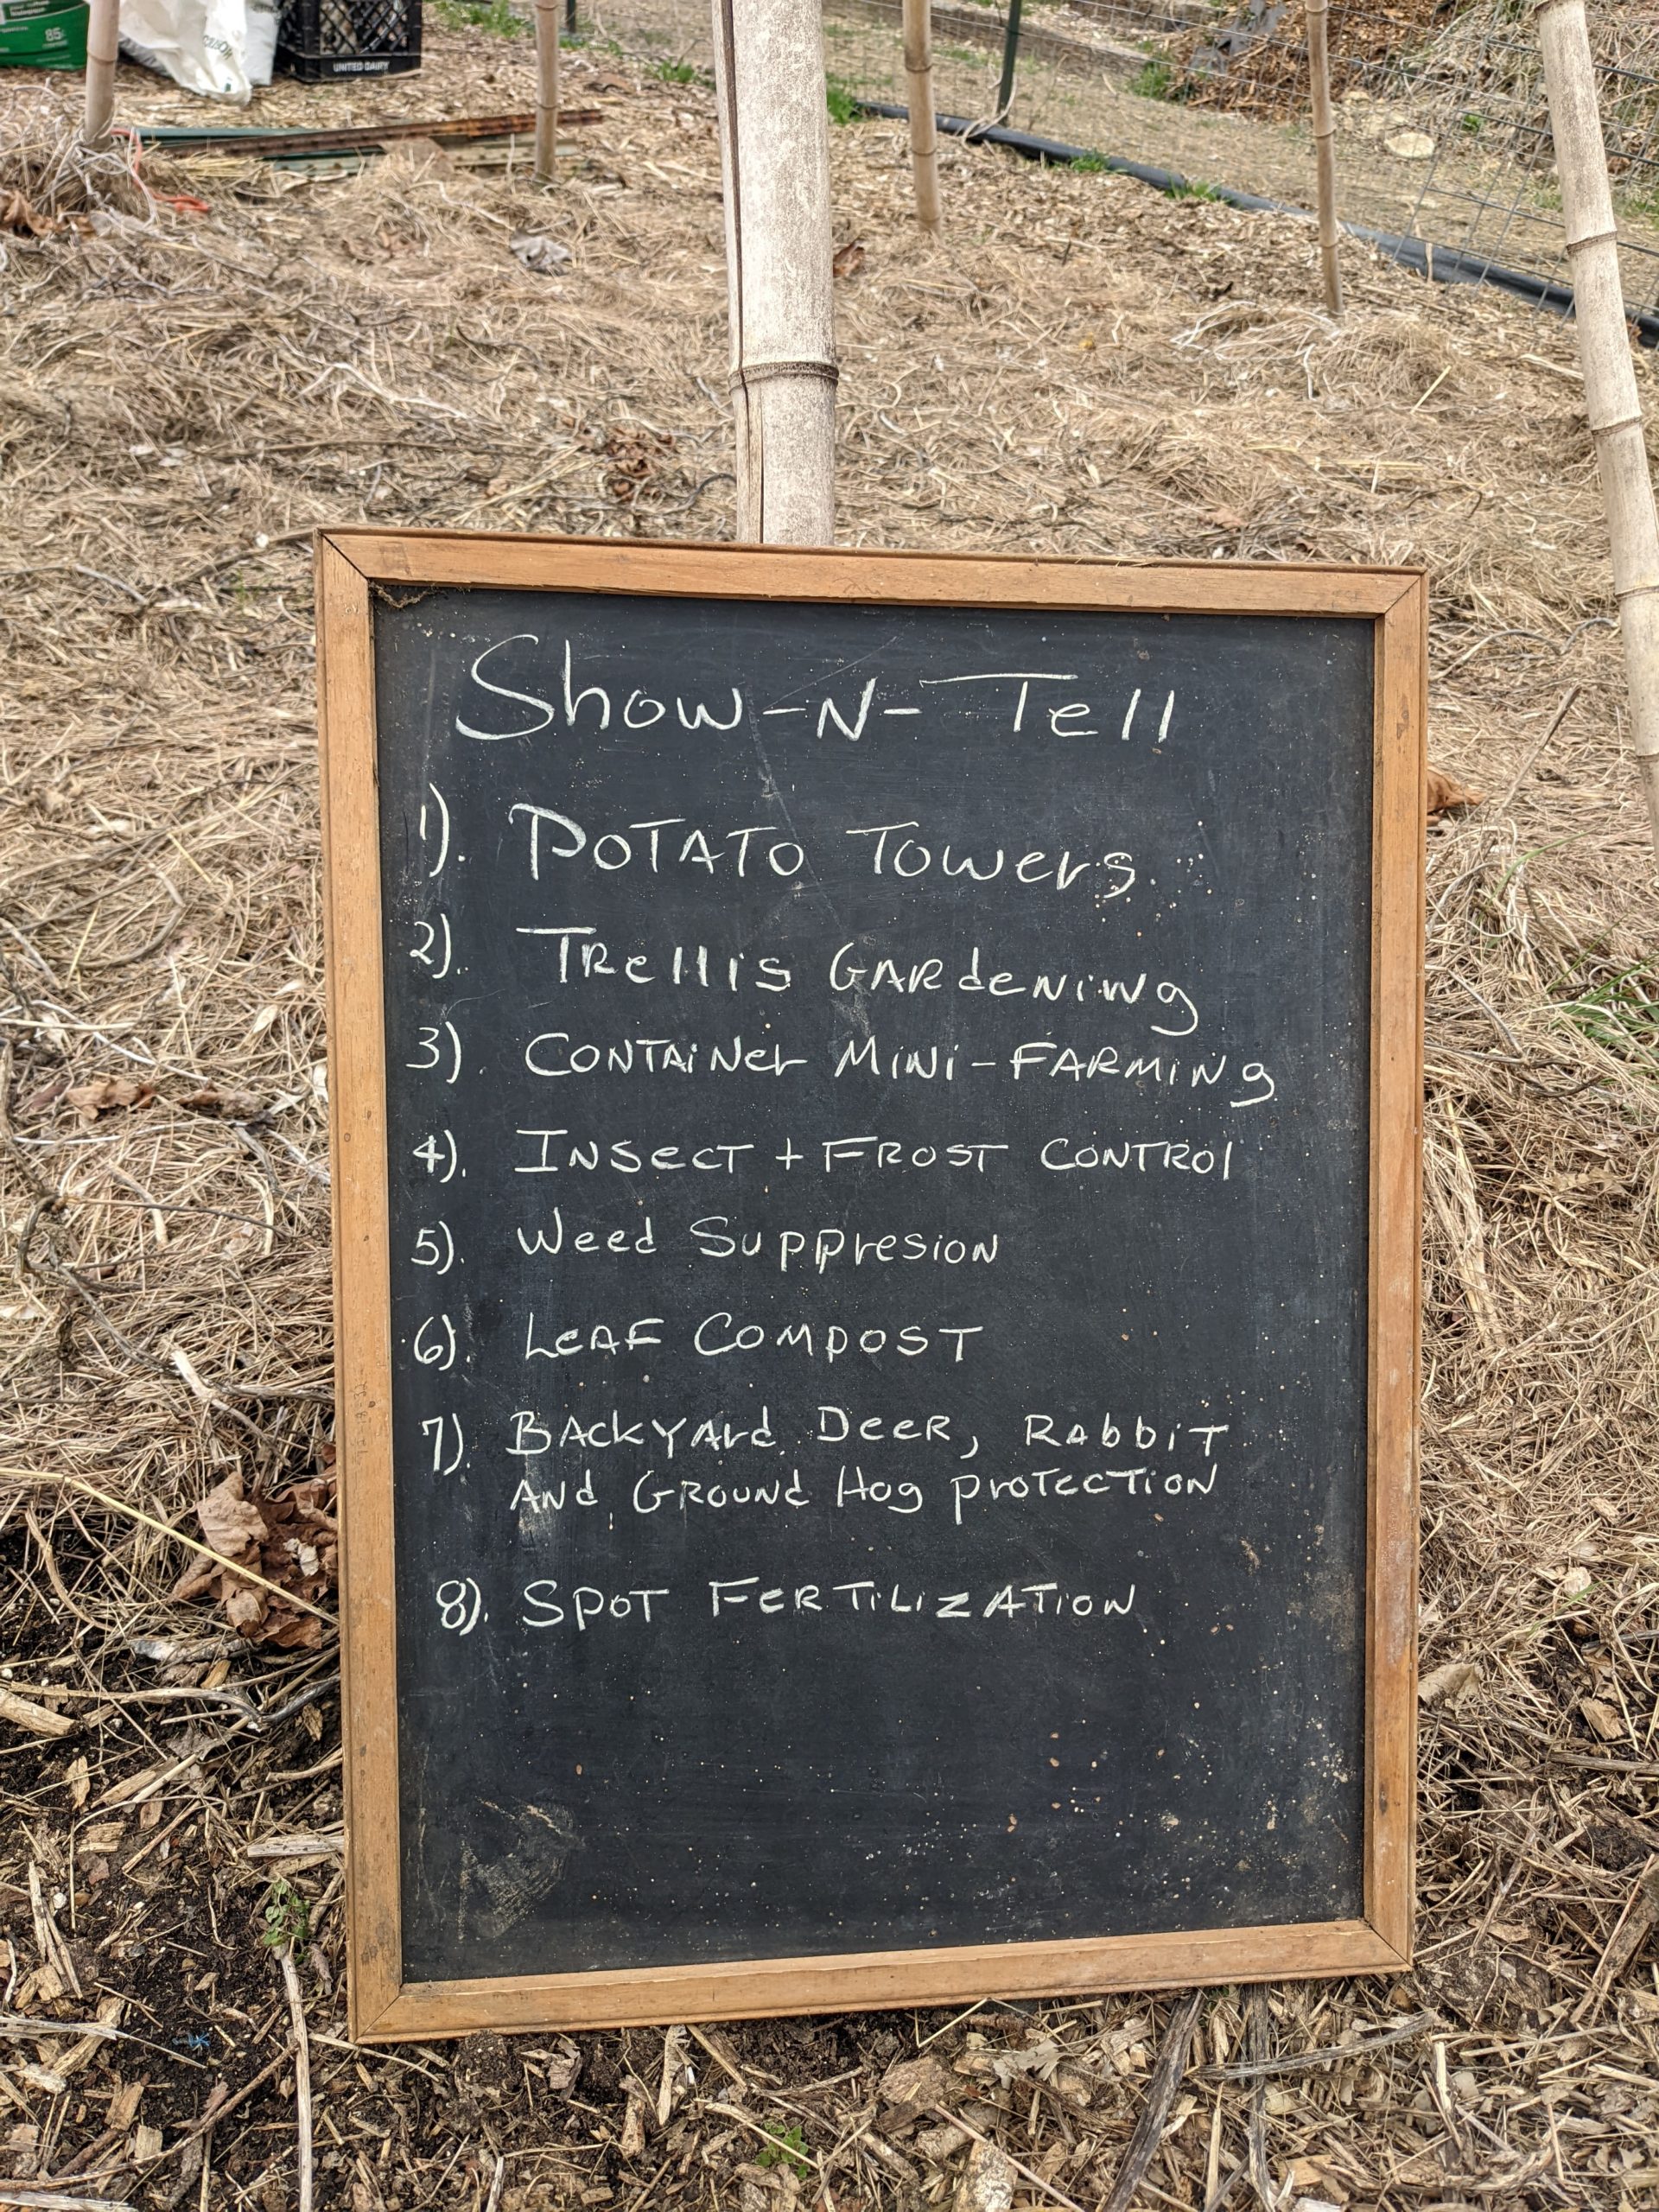 85
UNITED DAIRY
Show-N-Tell
1). POTATO TOWers
2). TRellis GARdeNiNg
3). CONTAiNer MiNi-FARMiNg
4). INSecT + FROST CONTROl
5). Weed SuppresioN
6). LeAF COMPOST
7). BAckYArd DeeR, RabbiT
ANd GROUNd Hog proTecTiON
8). SPOT FERTiLiZATiON